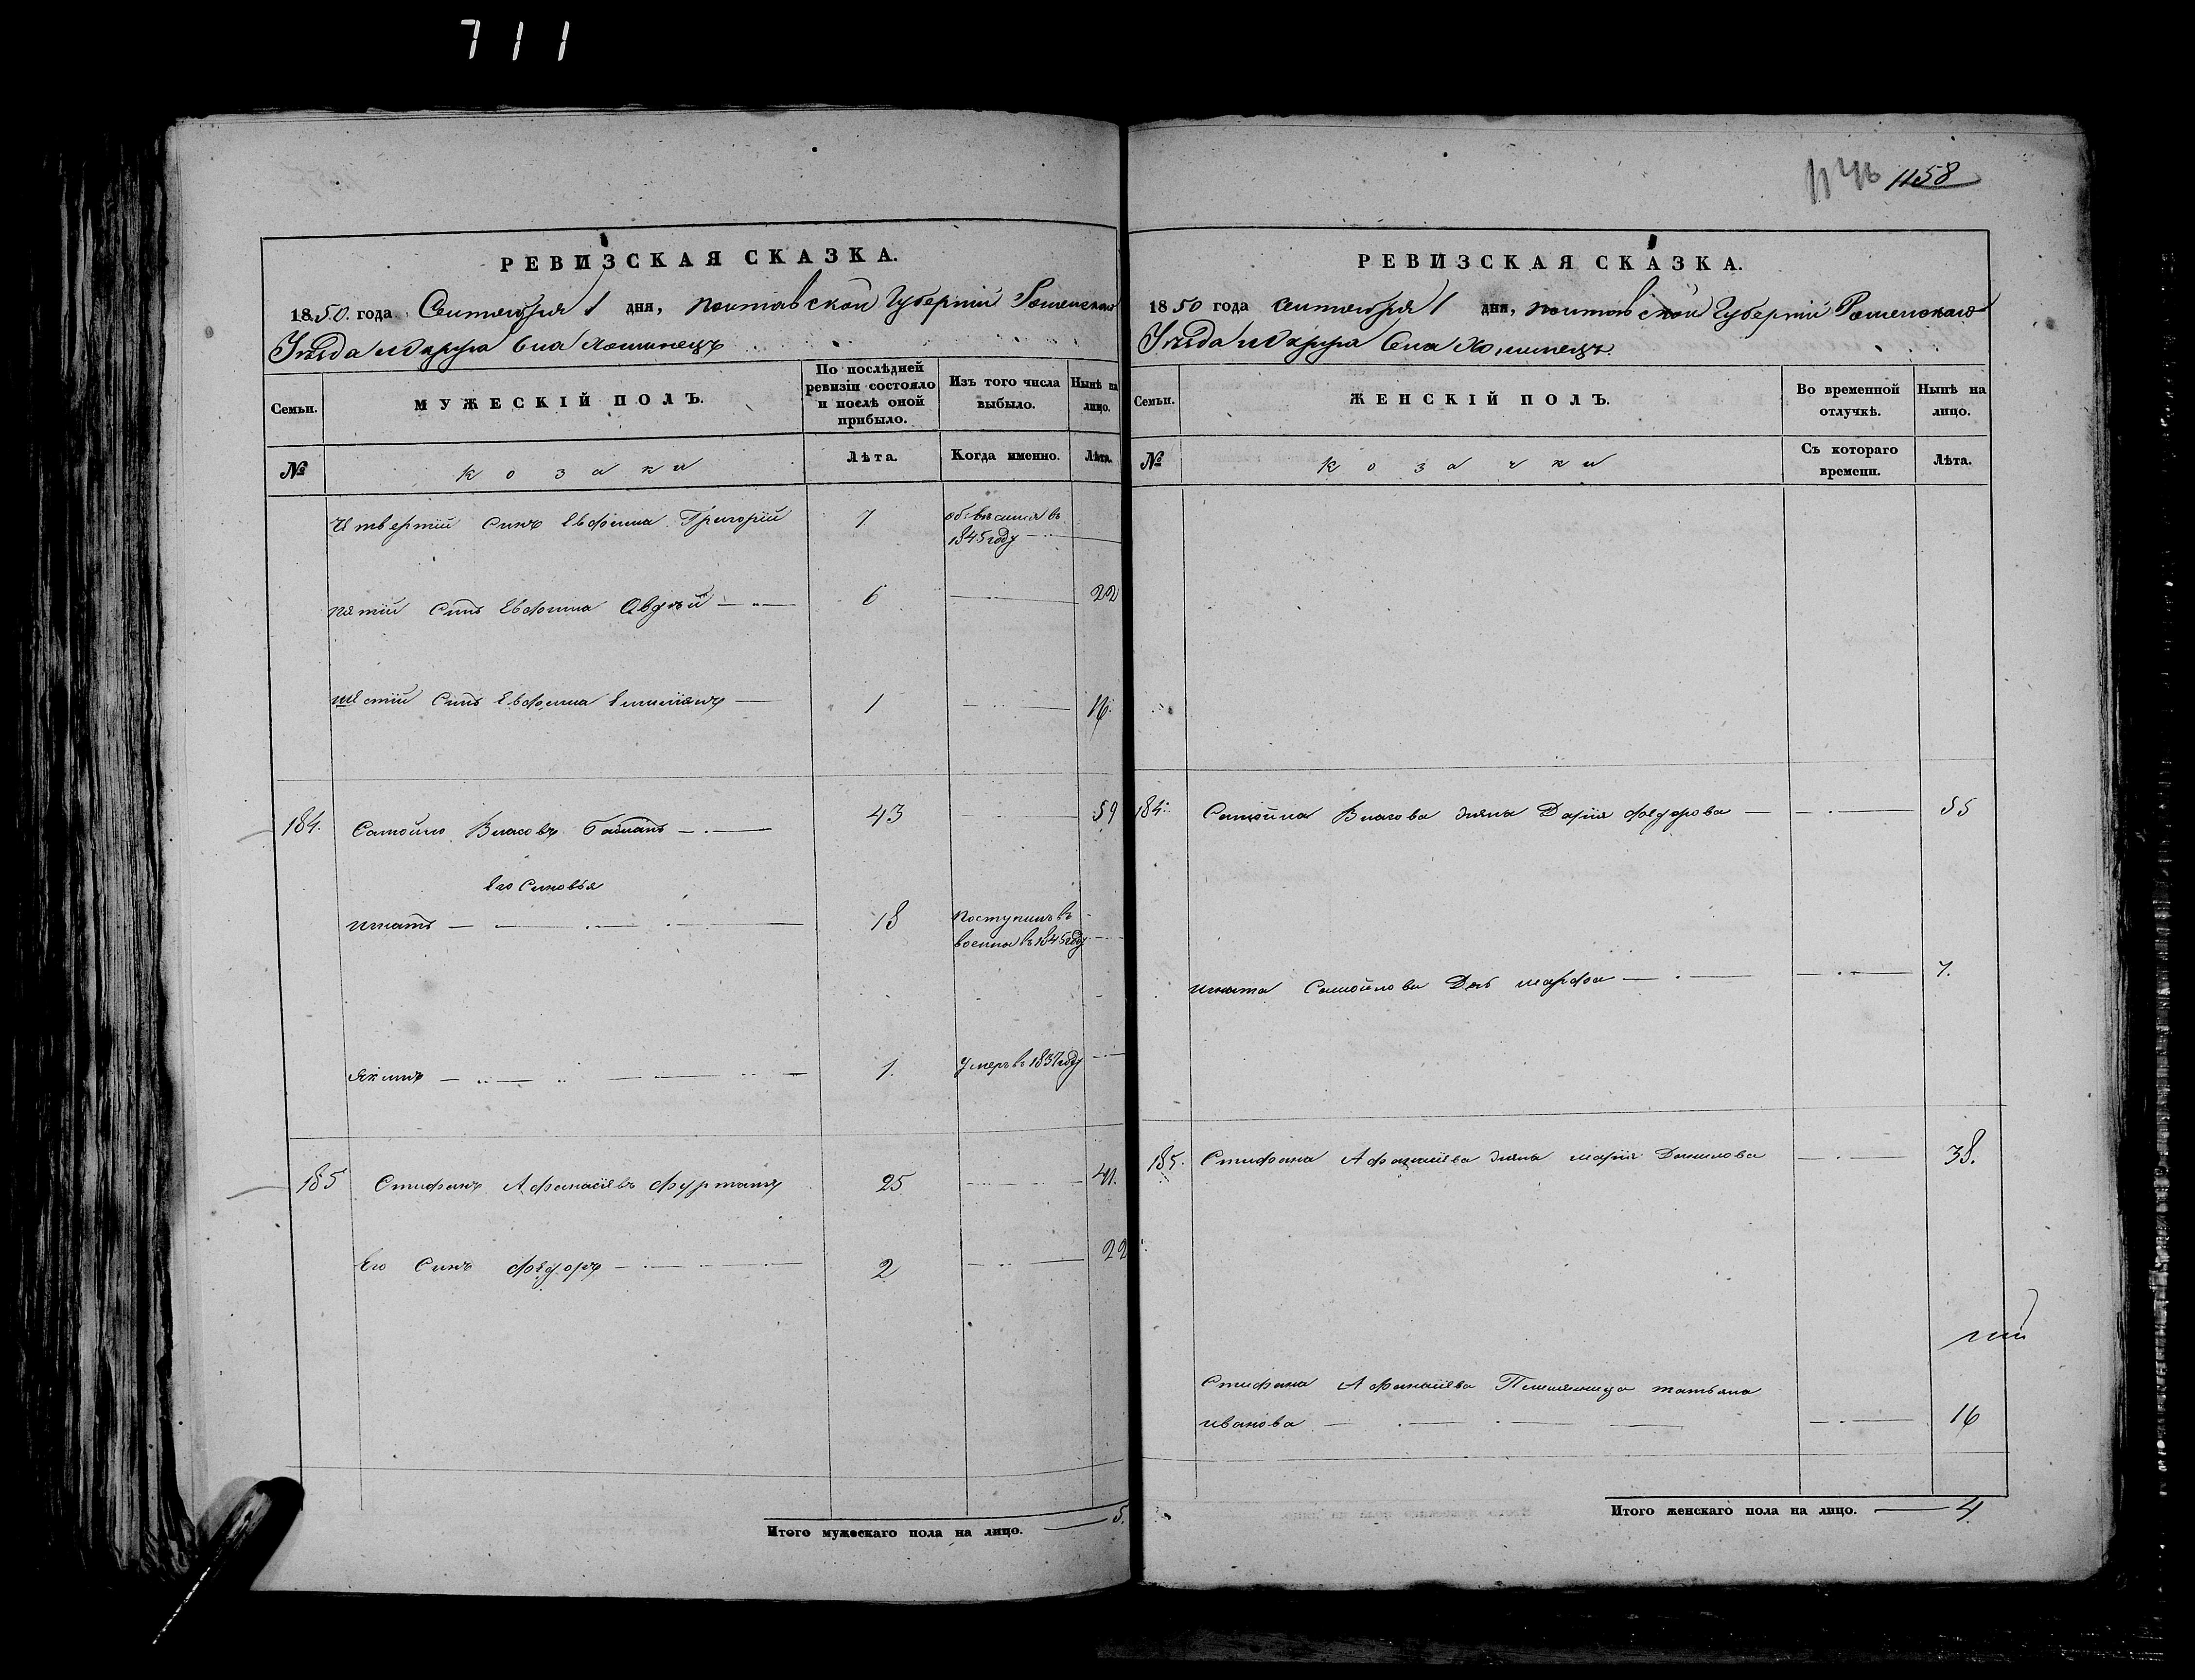 711
1158
РЕВИЗСКАЯ СКАЗКА.
1850 года Сентября 1 дня, Полтавской Губерніи Роменскаго
Уѣзда
МУЖЕСКІЙ ПОЛЪ.
Семьи.
По послѣдней ревизіи состояло и послѣ оной прибыло.
Изъ того числа выбыло.
Нынѣ на лицо.
№
козаки
Лѣта.
Когда именно.
Лѣта.
Четвертий Синъ Евфима Григорій 7
въ 1845 году
пятий Синъ Евфима Авдѣй 6 22
шестий Синъ Евфима Емилiянъ 1 16
184. Самойло Власовъ 43 59
Его Синовья
Игнатъ 18 Поступилъ въ
въ 1845 году
Якимъ 1. Умеръ въ 1837 году
185 Стефанъ Афанасіевъ Фурманъ 25 41.
Его Синъ Федоръ 2 22
Итого мужескаго пола на лицо. 5.
РЕВИЗСКАЯ СКАЗКА.
1850 года Сентября 1 дня, Полтавской Губерніи Роменскаго
Уѣзда
Семьи.
ЖЕНСКІЙ ПОЛЪ.
Во временной отлучкѣ.
Нынѣ на лицо.
№
козачки
Съ котораго времени.
Лѣта.
184. Самойла Власова жена Дарія Федорова 55
Игната Самойлова Дочь Марфа 7.
185. Стефана Афанасіева жена Марія Данилова 38.
Стефана Афанасіева татьяна
Иванова 16
Итого женскаго пола на лицо. 4